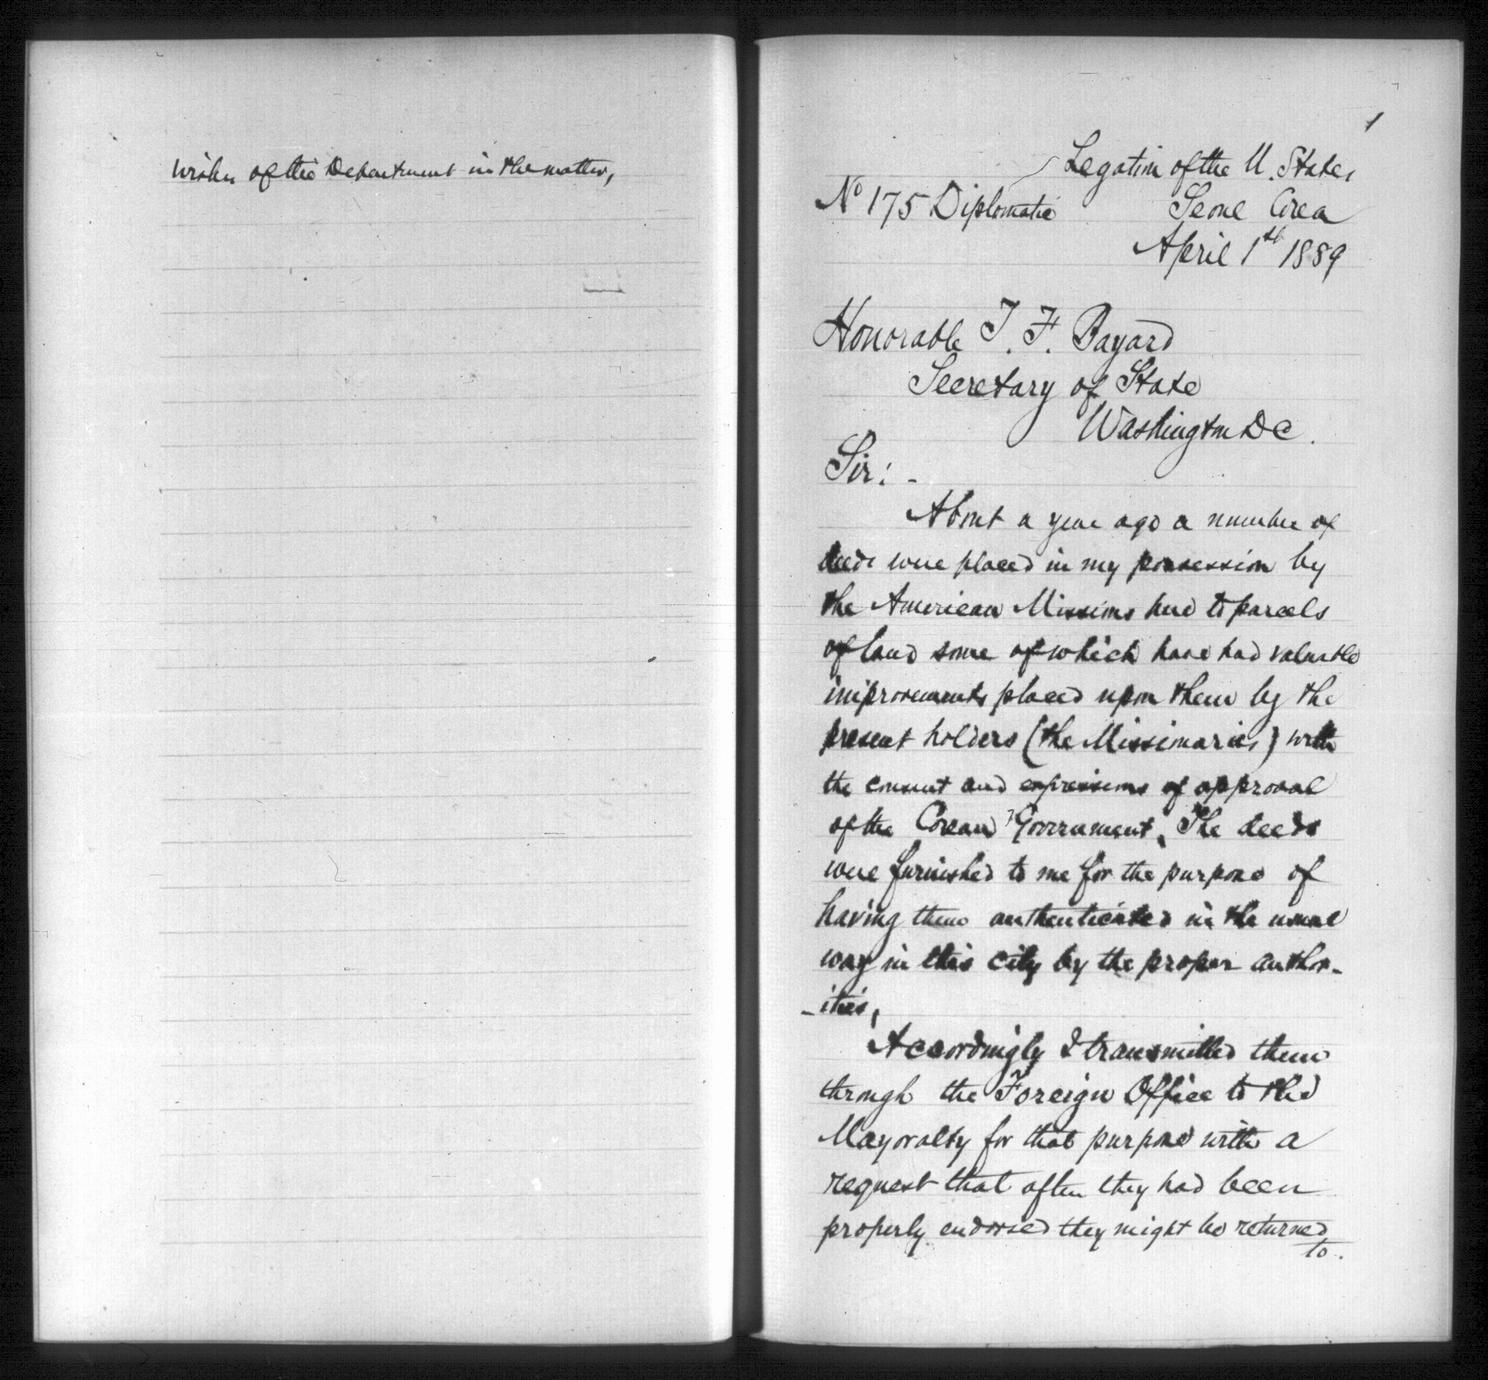 wishes of the Department in the matter,
1
Legation of the U. States
No 175 Diplomatic Seoul Corea
April 1st 1889
Honorable T. F. Bayard
Secretary of State
Washington DC.
Sir: -
About a year ago a number of
deeds were placed in my possession by
the American Missions here to parcels
of land some of which have had valuable
improvements placed upon them by the
present holders (the Missionaries) with
the consent and expressions of approval
of the Corean Government, The deeds
were furnished to me for the purpose of
having them authenticated in the usual
way in this city by the proper author-
-ities,
Accordingly I transmitted them
through the Foreign Office to the
Mayoralty for that purpose with a
request that after they had been
properly endorsed they might be returned
to.